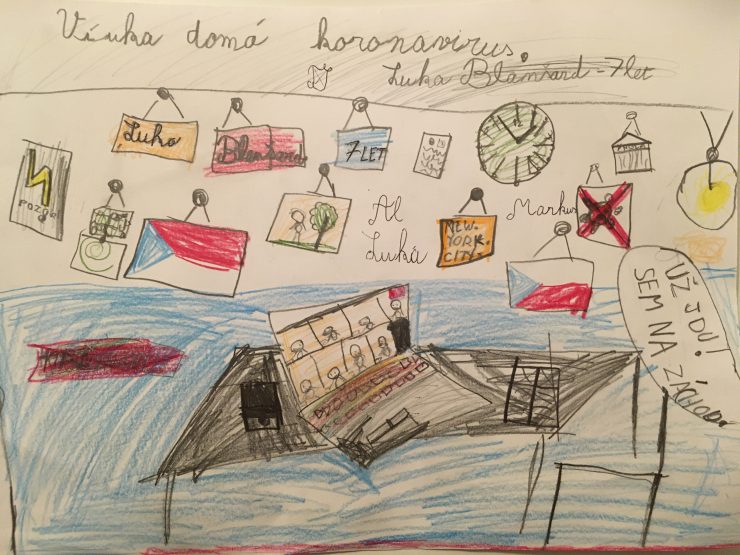 Víuka domá koronavirus.
Luka Blanžard - 7 let
Luka
Blanžard
7 LET
POZOR
Al
Luká
NEW.
YORK.
CITY.
Markus
UŽ JDU!
SEM NA ZÁCHOD.